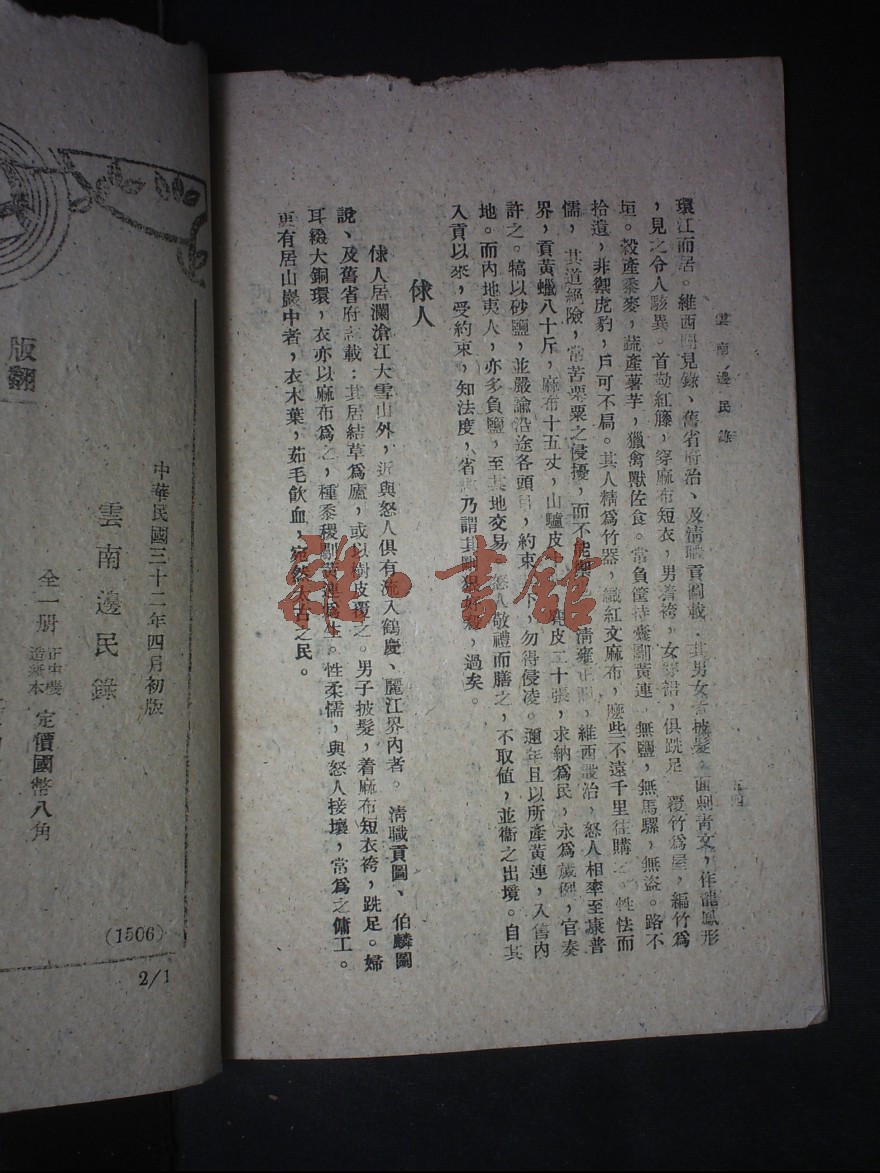 雲南邊民錄
環江而居。維西聞見錄、舊省府治、及清職貢圖載:其男女皆披髮,面刺青文,作龍鳳形
,見之令人駭異。首勒紅籐,穿麻布短衣,男着袴,女穿裙,俱跣足。覆竹爲屋,編竹爲
垣。穀產黍麥,蔬產薯芋,獵禽獸佐食。常負筐持囊劚黃連。無鹽,無馬騾,無盜。路不
拾遺,非禦虎豹,戶可不扃。其人精爲竹器,織紅文麻布,麽些不遠千里往購之。性怯而
儒,其道絕險,常苦栗粟之侵擾,而不能禦。清雍正間,維西設治,怒人相率至康普
界,貢黃蠟八十斤,麻布十五丈,山驢皮十,麂皮二十張,求納爲民,永爲歲例,官奏
許之。犒以砂鹽,並嚴諭沿途各頭目,約束下,勿得侵凌。邇年且以所產黃連,入售內
地。而內地夷人,亦多負鹽,至其地交易,怒人敬禮而膳之,不取值,並衞之出境。自其
入貢以來,受約束,知法度,省志乃謂其剛狠好殺,過矣。
俅人
俅人居瀾滄江大雪山外,近與怒人俱有流入鶴慶、麗江界內者。清職貢圖、伯麟圖
說、及舊省府志載:其居結草爲廬,或以樹皮覆之。男子披髮,着麻布短衣袴,跣足。婦
耳綴大銅環,衣亦以麻布爲之,種黍稷劚黃連爲生。性柔懦,與怒人接壤,常爲之傭工。
更有居山巖中者,衣木葉,茹毛飲血,宛然太古之民。
雜·書館
版翻
中華民國三十二年四月初版
雲南邊民錄
全一册
定價國幣八角
(1506)
2/1